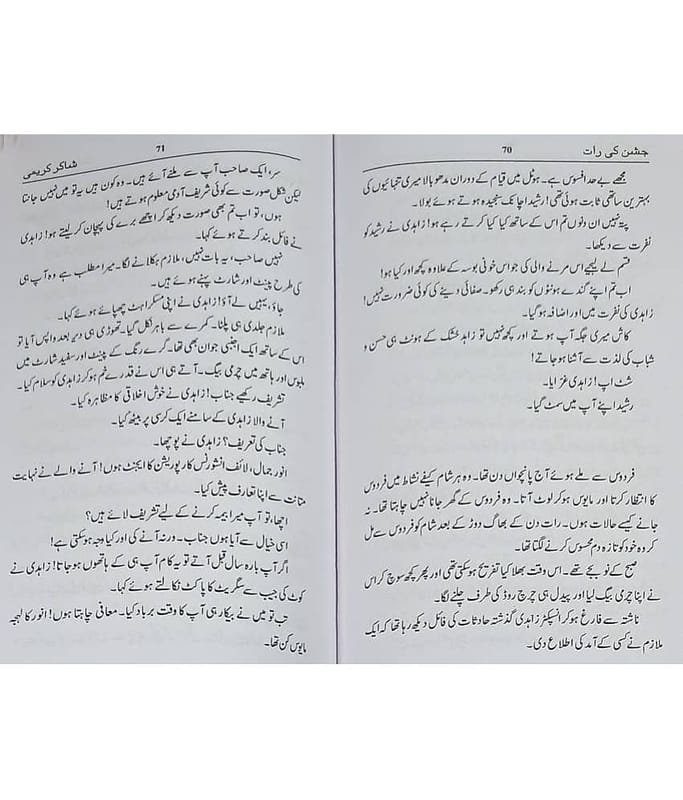 جشن کی رات
70
مجھے بے حد افسوس ہے۔ ہوٹل میں قیام کے دوران مدھو بالا میری تنہائیوں کی
بہترین ساتھی ثابت ہوئی تھی! رشید اچانک سنجیدہ ہوتے ہوئے بولا۔
پتہ نہیں ان دنوں تم اس کے ساتھ کیا کیا کرتے رہے ہو! زاہدی نے رشید کو
نفرت سے دیکھا۔
قسم لے لیجیے اس مرنے والی کی جو اس خونی بوسہ کے علاوہ کچھ اور کیا ہو!
اب تم اپنے گندے ہونٹوں کو بند ہی رکھو۔ صفائی دینے کی کوئی ضرورت نہیں!
زاہدی کی نفرت میں اور اضافہ ہو گیا۔
کاش میری جگہ آپ ہوتے اور کچھ نہیں تو زاہد خشک کے ہونٹ ہی حسن و
شباب کی لذت سے آشنا ہو جاتے!
شٹ اپ! زاہدی غرّایا۔
رشید اپنے آپ میں سمٹ گیا۔
فردوس سے ملے ہوئے آج پانچواں دن تھا۔ وہ ہر شام کیفے نشاط میں فردوس
کا انتظار کرتا اور مایوس ہو کر لوٹ آتا۔ وہ فردوس کے گھر جانا نہیں چاہتا تھا۔ نہ
جانے کیسے حالات ہوں۔ رات دن کے بھاگ دوڑ کے بعد شام کو فردوس سے مل
کر وہ خود کو تازہ دم محسوس کرنے لگتا تھا۔
صبح کے نو بجے تھے۔ اس وقت بھلا کیا تفریح ہو سکتی تھی اور پھر کچھ سوچ کر اس
نے اپنا چرمی بیگ لیا اور پیدل ہی چرچ روڈ کی طرف چلنے لگا۔
ناشتہ سے فارغ ہو کر انسپکٹر زاہدی گذشتہ حادثات کی فائل دیکھ رہا تھا کہ ایک
ملازم نے کسی کے آمد کی اطلاع دی۔
71
شاکر کریمی
سر، ایک صاحب آپ سے ملنے آئے ہیں۔ وہ کون ہیں یہ تو میں نہیں جانتا
لیکن شکل صورت سے کوئی شریف آدمی معلوم ہوتے ہیں!
ہوں، تو اب تم بھی صورت دیکھ کر اچھے برے کی پہچان کر لیتے ہو! زاہدی
نے فائل بند کرتے ہوئے کہا۔
نہیں صاحب، یہ بات نہیں، ملازم ہکلانے لگا۔ میرا مطلب ہے وہ آپ ہی
کی طرح پینٹ اور شارٹ پہنے ہوئے ہیں۔
جاؤ، یہیں لے آؤ! زاہدی نے اپنی مسکراہٹ چھپاتے ہوئے کہا۔
ملازم جلدی ہی پلٹا۔ کمرے سے باہر نکل گیا۔ تھوڑی ہی دیر بعد واپس آیا تو
اس کے ساتھ ایک اجنبی جوان بھی تھا۔ گرے رنگ کے پینٹ اور سفید شارٹ میں
ملبوس اور ہاتھ میں چرمی بیگ۔ آتے ہی اس نے قدرے خم ہو کر زاہدی کو سلام کیا۔
تشریف رکھیے جناب! زاہدی نے خوش اخلاقی کا مظاہرہ کیا۔
آنے والا زاہدی کے سامنے ایک کرسی پر بیٹھ گیا۔
جناب کی تعریف؟ زاہدی نے پوچھا۔
انور جمال، لائف انشورنس کارپوریشن کا ایجنٹ ہوں! آنے والے نے نہایت
متانت سے اپنا تعارف پیش کیا۔
اچھا، تو آپ میرا بیمہ کرنے کے لیے تشریف لائے ہیں؟
اسی خیال سے آیا ہوں جناب۔ ورنہ آنے کی اور کیا وجہ ہو سکتی ہے!
اگر آپ بارہ سال قبل آتے تو یہ کام آپ ہی کے ہاتھوں ہو جاتا! زاہدی نے
کوٹ کی جیب سے سگریٹ کا پاکٹ نکالتے ہوئے کہا۔
تب تو میں نے بیکار ہی آپ کا وقت برباد کیا۔ معافی چاہتا ہوں! انور کا لہجہ
مایوس کن تھا۔